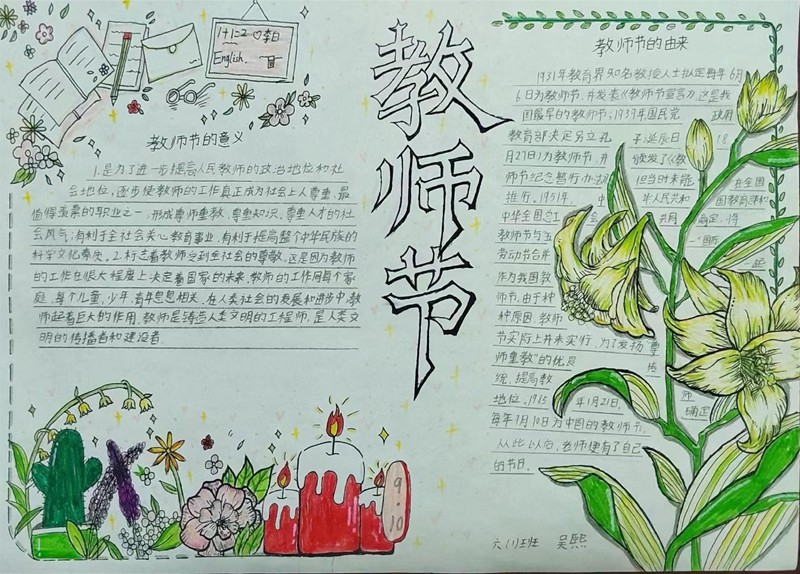 1+1=2 ♡李白
English.
教师节的意义
1.是为了进一步提高人民教师的政治地位和社
会地位,逐步使教师的工作真正成为社会上人尊重、最
值得羡慕的职业之一,形成尊师重教、尊重知识、尊重人才的社
会风气;有利于全社会关心教育事业,有利于提高整个中华民族的
科学文化素质。2.标志着教师受到全社会的尊敬。这是因为教师
的工作在很大程度上决定着国家的未来。教师的工作同每个家
庭、每个儿童、少年、青年息息相关。在人类社会的发展和进步中,教
师起着巨大的作用。教师是铸造人类文明的工程师,是人类文
明的传播者和建设者.
教师节
教师节的由来
1931年教育界知名教授人士拟定每年6月
6日为教师节,并发表《教师节宣言》,这是我
国最早的教师节;1939年国民党 政府
教育部决定另立孔 子诞辰日 18
月27日)为教师节,并 颁发了《教
师节纪念暂行办法》 但当时未能 在全国
推行。1951年, 中 华人民共和 国教育部和
中华全国总工 共同 商定,将
教师节与五 一"国际
劳动节合并 一起
作为我国教
师节。由于种
种原因,教师
节实际上并未实行。为了发扬"尊
师重教"的优良 传
统,提高教 师
地位,1985 年1月21日, 确定
每年9月10日为中国的教师节,
从此以后,老师便有了自己
的节日。
9.10
六(1)班 吴熙